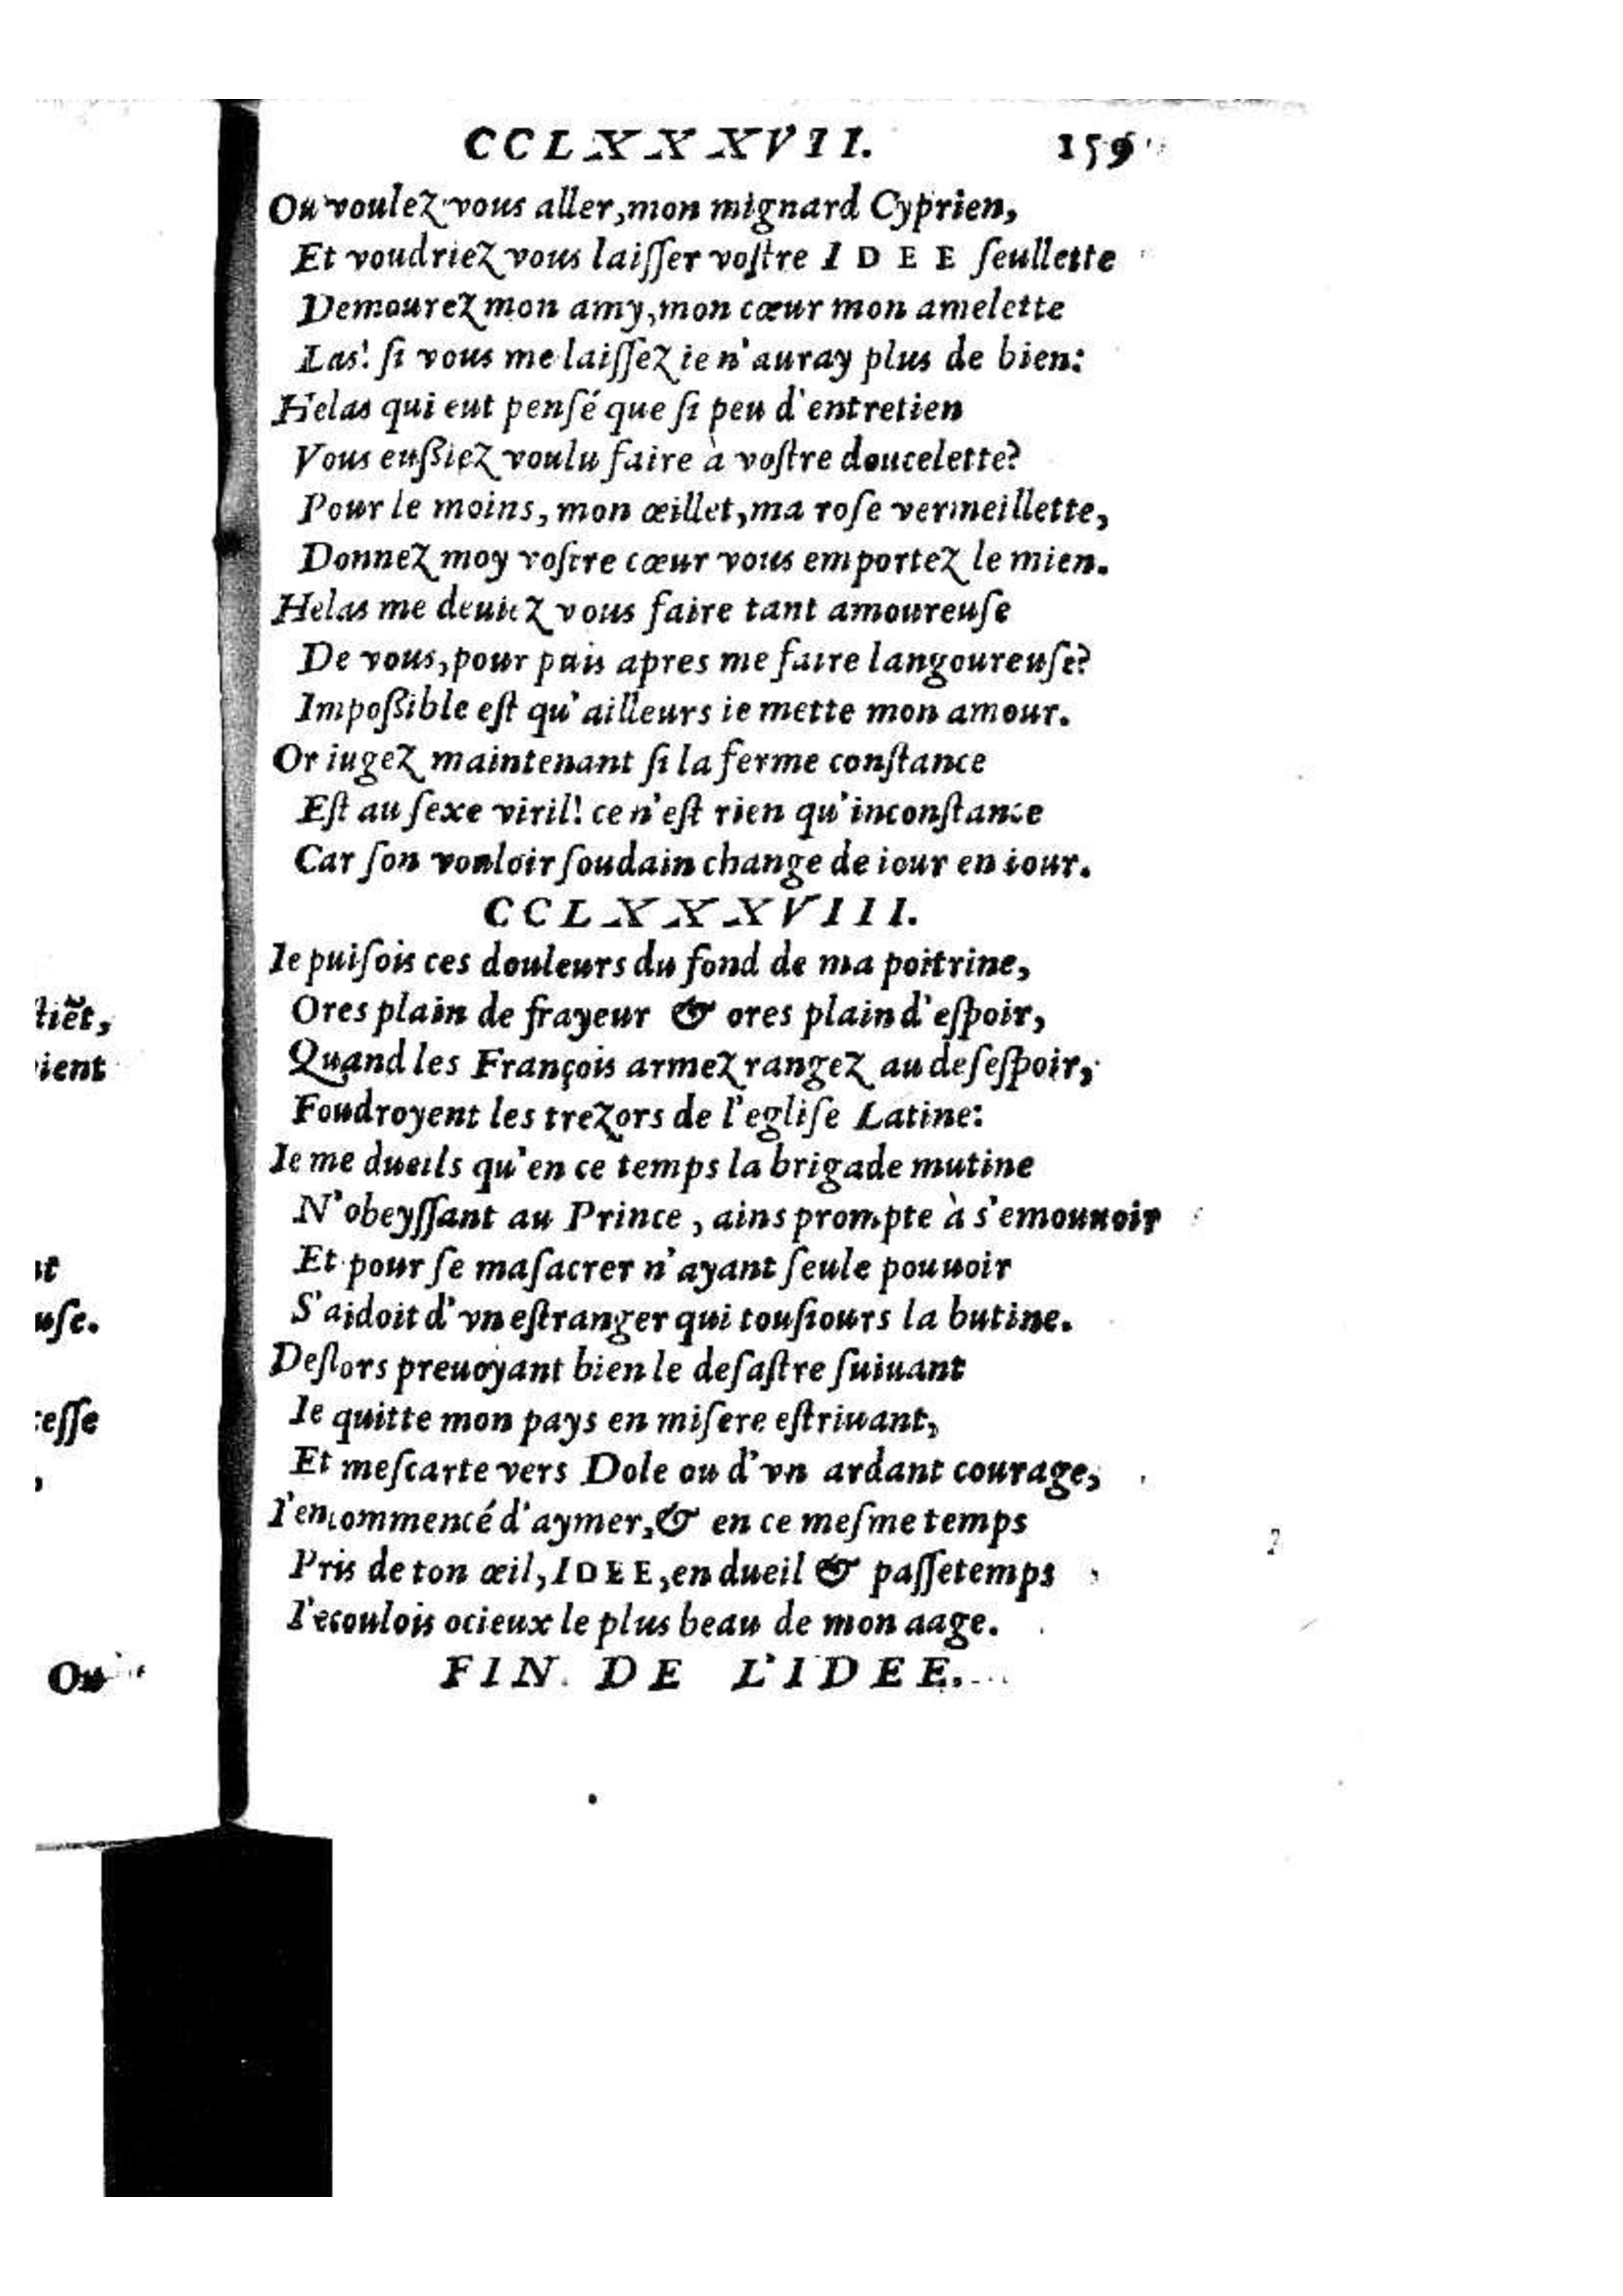 CCLXXXVII. 159
Ou voulez vous aller, mon mignard Cyprien,
Et voudriez vous laiſſer voſtre IDEE ſeullette
Demourez mon amy, mon cœur mon amelette
Las! ſi vous me laiſſez ie n'auray plus de bien:
Helas qui eut penſé que ſi peu d'entretien
Vous eußiez voulu faire à voſtre doucelette?
Pour le moins, mon œillet, ma roſe vermeillette,
Donnez moy voſtre cœur vous emportez le mien.
Helas me deuiez vous faire tant amoureuſe
De vous, pour puis apres me faire langoureuſe?
Impoßible eſt qu'ailleurs ie mette mon amour.
Or iugez maintenant ſi la ferme conſtance
Eſt au ſexe viril! ce n'eſt rien qu'inconſtance
Car ſon vouloir ſoudain change de iour en iour.
CCLXXXVIII.
Ie puiſois ces douleurs du fond de ma poitrine,
Ores plain de frayeur & ores plain d'eſpoir,
Quand les François armez rangez au deſeſpoir,
Foudroyent les trezors de l'egliſe Latine:
Ie me dueils qu'en ce temps la brigade mutine
N'obeyſſant au Prince, ains prompte à s'emouuoir
Et pour ſe maſacrer n'ayant ſeule pouuoir
S'aidoit d'vn eſtranger qui touſiours la butine.
Deſlors preuoyant bien le deſaſtre ſuiuant
Ie quitte mon pays en miſere eſtriuant,
Et meſcarte vers Dole ou d'vn ardant courage,
I'encommencé d'aymer, & en ce meſme temps
Pris de ton œil, IDEE, en dueil & paſſetemps
I'ecoulois ocieux le plus beau de mon aage.
FIN DE L'IDEE.
Ou